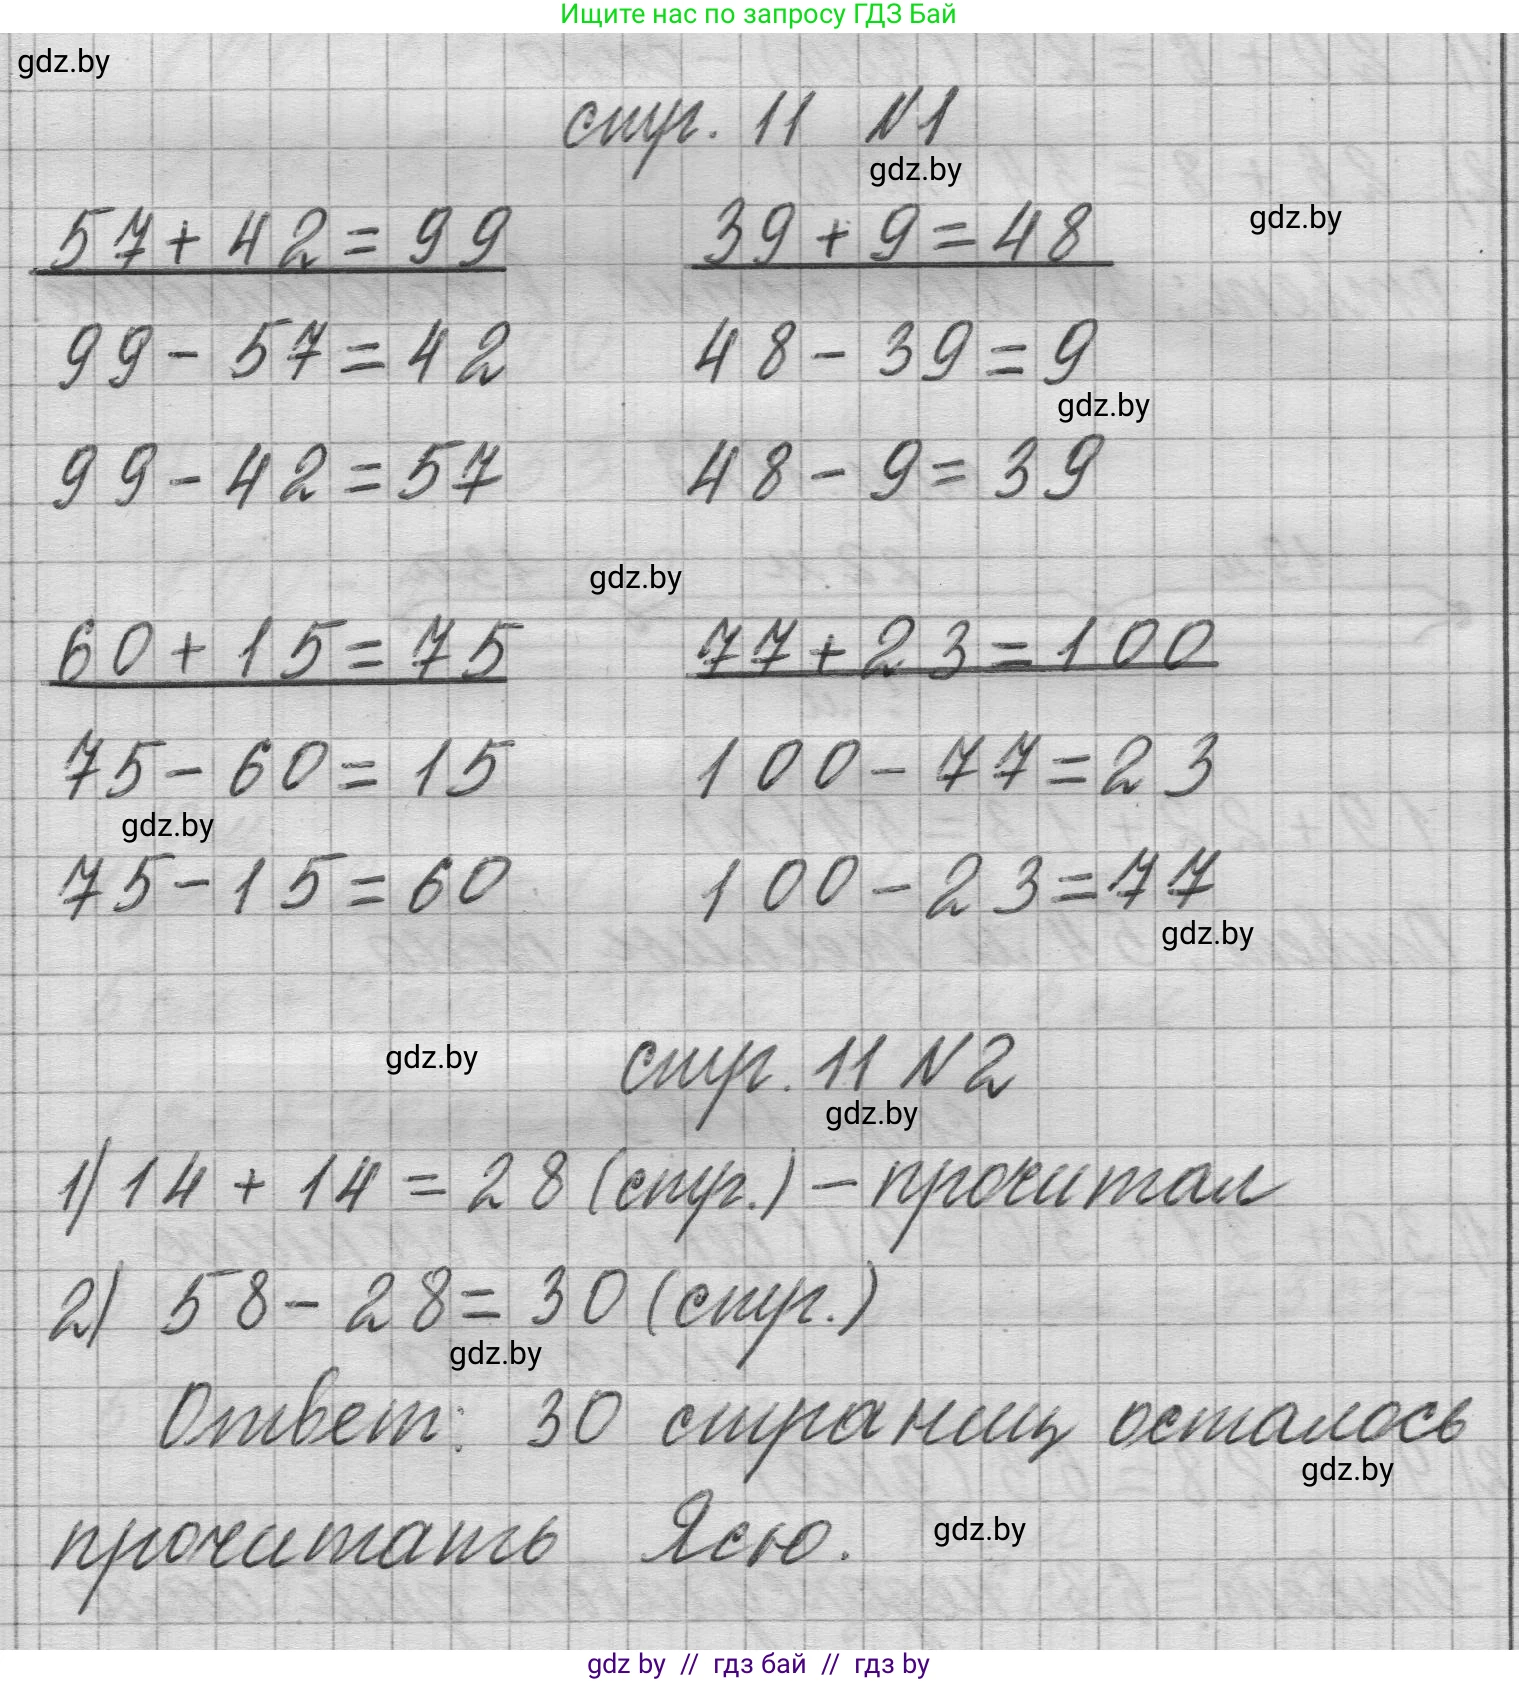 Ищите нас по запросу ГДЗ Бай
gdz.by
стр. 11 №1
gdz.by
57+42=99 39+9=48
gdz.by
99-57=42 48-39=9
gdz.by
99-42=57 48-9=39
gdz.by
60+15=75 77+23=100
75-60=15 100-77=23
gdz.by
75-15=60 100-23=77
gdz.by
gdz.by
стр. 11 №2
gdz.by
1) 14+14=28 (стр.) – прочитал
2) 58-28=30 (стр.)
gdz.by
Ответ: 30 страниц осталось
gdz.by
прочитать Ясю.
gdz.by
gdz by // гдз бай // гдз by